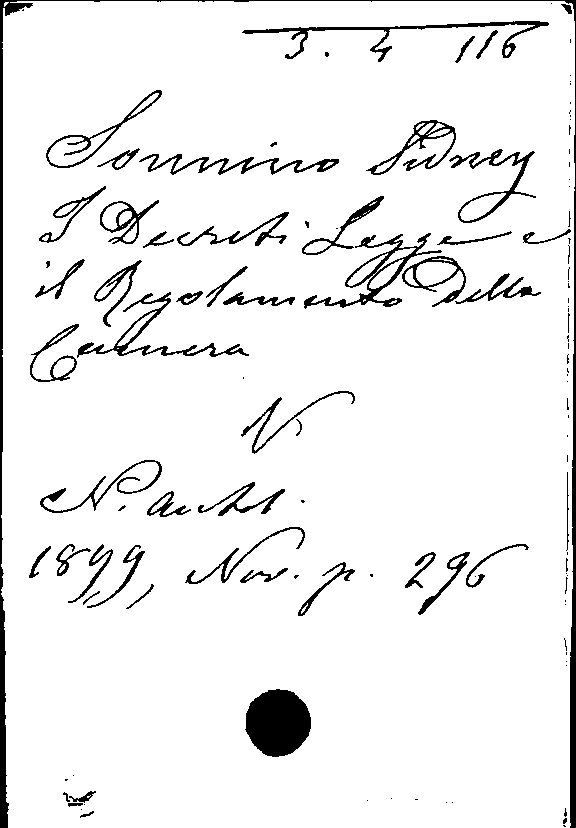 3. 4 116
Sonnino Sidney
I Decreti Legge e
il Regolamento della
Camera
V.
N. Antol.
1899, Nov. p. 296